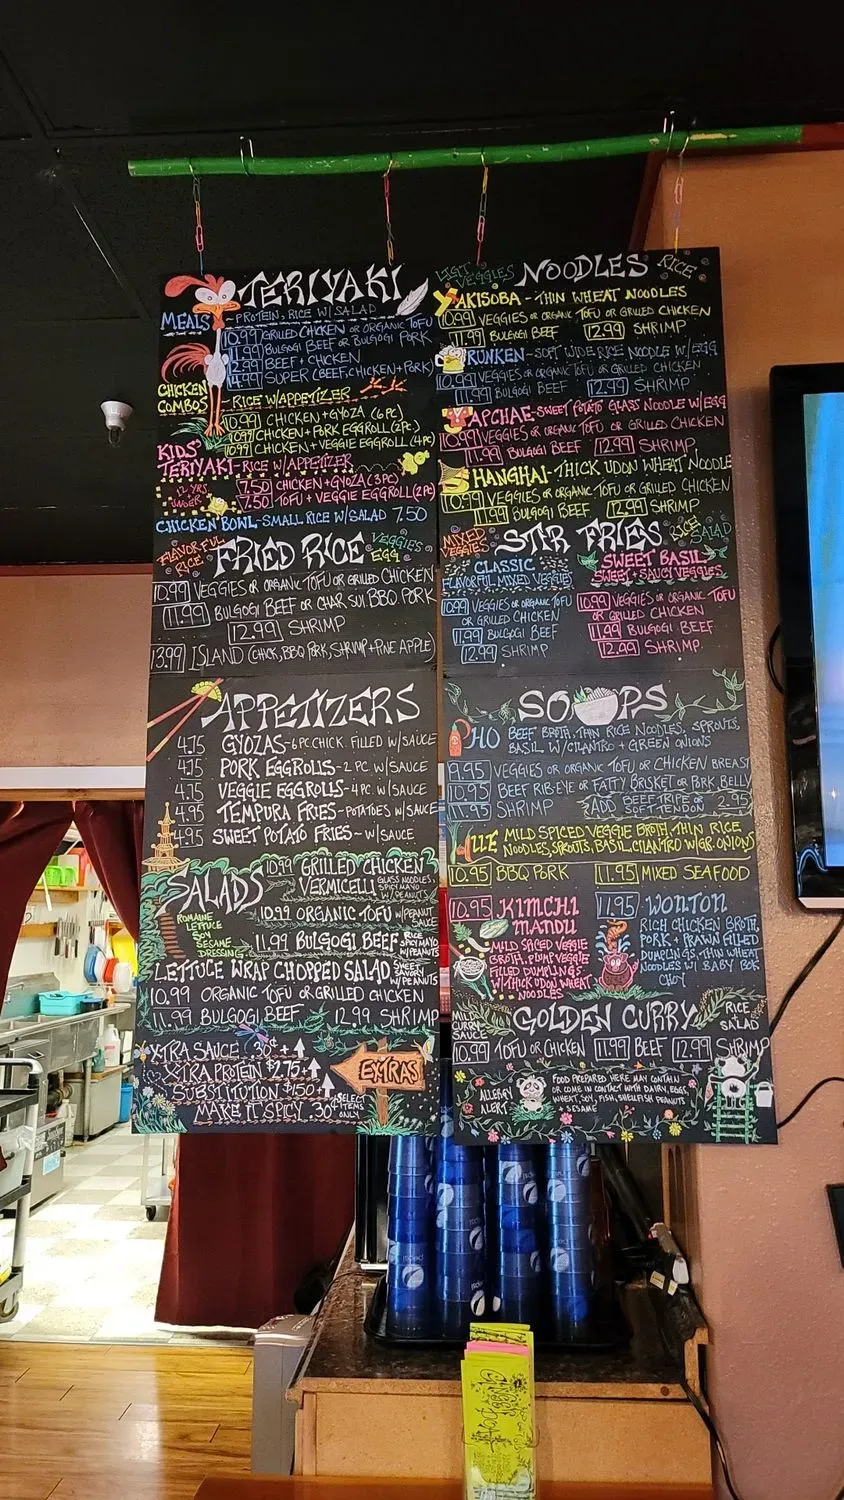 TERIYAKI
MEALS - PROTEIN, RICE W/ SALAD
10.99 GRILLED CHICKEN OR ORGANIC TOFU
11.99 BULGOGI BEEF OR BULGOGI PORK
12.99 BEEF + CHICKEN
14.99 SUPER (BEEF, CHICKEN + PORK)
CHICKEN COMBOS - RICE W/ APPETIZER
10.99 CHICKEN + GYOZA (6 PC)
10.99 CHICKEN + PORK EGGROLL (2 PC)
10.99 CHICKEN + VEGGIE EGGROLL (4 PC)
KIDS' TERIYAKI - RICE W/ APPETIZER
12 YRS UNDER
7.50 CHICKEN + GYOZA (3 PC)
7.50 TOFU + VEGGIE EGGROLL (2 PC)
CHICKEN BOWL - SMALL RICE W/ SALAD 7.50
FLAVORFUL RICE FRIED RICE VEGGIES EGG
10.99 VEGGIES OR ORGANIC TOFU OR GRILLED CHICKEN
11.99 BULGOGI BEEF OR CHAR SUI BBQ PORK
12.99 SHRIMP
13.99 ISLAND (CHICK, BBQ PORK, SHRIMP + PINE APPLE)
APPETIZERS
4.75 GYOZAS - 6 PC. CHICK. FILLED W/ SAUCE
4.75 PORK EGGROLLS - 2 PC W/ SAUCE
4.75 VEGGIE EGGROLLS - 4 PC W/ SAUCE
4.95 TEMPURA FRIES - POTATOES W/ SAUCE
4.95 SWEET POTATO FRIES - W/ SAUCE
SALADS
ROMAINE
LETTUCE
SOY
SESAME
DRESSING
10.99 GRILLED CHICKEN
VERMICELLI GLASS NOODLES, SPICY MAYO W/ PEANUTS
10.99 ORGANIC TOFU W/ PEANUT SAUCE
11.99 BULGOGI BEEF RICE SPICY MAYO W/ PEANUTS
LETTUCE WRAP CHOPPED SALAD SWEET SAVORY W/ PEANUTS
10.99 ORGANIC TOFU OR GRILLED CHICKEN
11.99 BULGOGI BEEF 12.99 SHRIMP
X-TRA SAUCE 30¢+
X-TRA PROTEIN $2.75+
SUBSTITUTION $1.50+
MAKE IT SPICY 30¢ SELECT ITEMS ONLY
EXTRAS
LIGHT VEGGIES NOODLES RICE
YAKISOBA - THIN WHEAT NOODLES
10.99 VEGGIES OR ORGANIC TOFU OR GRILLED CHICKEN
11.99 BULGOGI BEEF 12.99 SHRIMP
DRUNKEN - SOFT WIDE RICE NOODLE W/ EGG
10.99 VEGGIES OR ORGANIC TOFU OR GRILLED CHICKEN
11.99 BULGOGI BEEF 12.99 SHRIMP
JAPCHAE - SWEET POTATO GLASS NOODLE W/ EGG
10.99 VEGGIES OR ORGANIC TOFU OR GRILLED CHICKEN
11.99 BULGOGI BEEF 12.99 SHRIMP
SHANGHAI - THICK UDON WHEAT NOODLE
10.99 VEGGIES OR ORGANIC TOFU OR GRILLED CHICKEN
11.99 BULGOGI BEEF 12.99 SHRIMP
MIXED VEGGIES STIR FRIES RICE SALAD
CLASSIC
FLAVORFUL MIXED VEGGIES
10.99 VEGGIES OR ORGANIC TOFU
OR GRILLED CHICKEN
11.99 BULGOGI BEEF
12.99 SHRIMP
SWEET BASIL
SWEET + SAUCY VEGGIES
10.99 VEGGIES OR ORGANIC TOFU
OR GRILLED CHICKEN
11.99 BULGOGI BEEF
12.99 SHRIMP
SOOPS
PHO BEEF BROTH, THIN RICE NOODLES, SPROUTS,
BASIL W/ CILANTRO + GREEN ONIONS
9.95 VEGGIES OR ORGANIC TOFU OR CHICKEN BREAST
10.95 BEEF RIB-EYE OR FATTY BRISKET OR PORK BELLY
11.95 SHRIMP ADD BEEF TRIPE OR SOFT TENDON 2.95
HUE MILD SPICED VEGGIE BROTH, THIN RICE
NOODLES, SPROUTS, BASIL, CILANTRO W/ GR. ONIONS
10.95 BBQ PORK 11.95 MIXED SEAFOOD
10.95 KIMCHI
MANDU
MILD SPICED VEGGIE
BROTH, PLUMP VEGGIE
FILLED DUMPLINGS
W/ THICK UDON WHEAT
NOODLES
11.95 WONTON
RICH CHICKEN BROTH,
PORK + PRAWN FILLED
DUMPLINGS, THIN WHEAT
NOODLES W/ BABY BOK
CHOY
MILD CURRY SAUCE GOLDEN CURRY RICE + SALAD
10.99 TOFU OR CHICKEN 11.99 BEEF 12.99 SHRIMP
ALLERGY ALERT
FOOD PREPARED HERE MAY CONTAIN
OR COME IN CONTACT WITH DAIRY, EGGS
WHEAT, SOY, FISH, SHELLFISH PEANUTS
+ SESAME